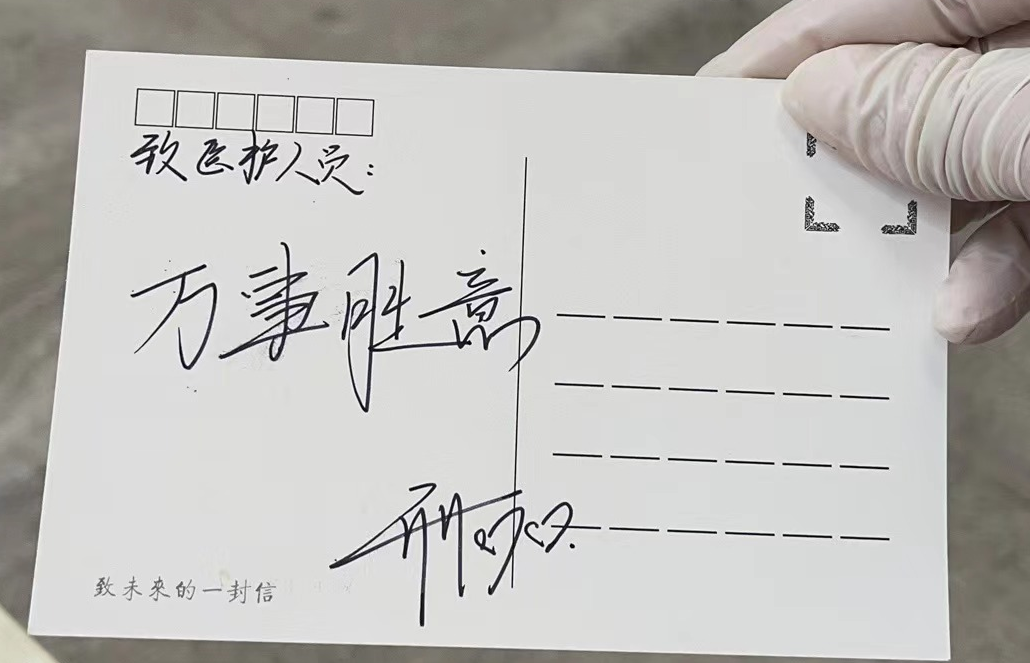 致医护人员:
万事胜意
致未來的一封信